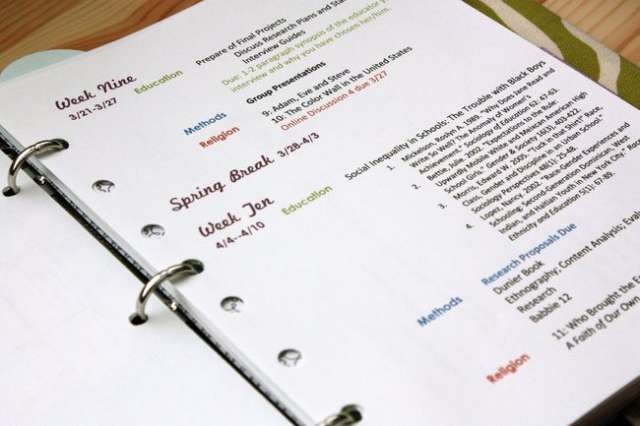 Prepare of Final Projects
Discuss Research Plans and
Interview Guides
Week Nine
3/21-3/27
Education
Due: 1-2 paragraph synopsis of the educator
interview and why you have chosen her/him.
Group Presentations
Methods
9: Adam, Eve and Steve
10: The Color Wall in the United States
Religion
Online Discussion 4 due 3/27
Spring Break 3/28-4/3
Week Ten
4/4--4/10
Education
Social Inequality in Schools: The Trouble with Black Boys
1. Mickelson, Roslyn A. 1989. "Why Does Jane Read and
Write So Well? The Anomaly of Women's
Achievement." Sociology of Education 62: 47-63.
2. Bettie, Julie. 2002. "Expectations to the Rule:
Upwardly Mobile White and Mexican American High
School Girls." Gender & Society 16(3), 403-422.
3. Morris, Edward W. 2005. "Tuck in that Shirt!" Race,
Class, Gender, and Discipline in an Urban School."
Sociology Perspectives 48(1): 25-48.
4. Lopez, Nancy. 2002. "Race-Gender Experiences and
Schooling: Second-Generation Dominican, West
Indian, and Haitian Youth in New York City." Race
Ethnicity and Education 5(1): 67-89.
Methods
Research Proposals Due
Dunier Book
Ethnography; Content Analysis;
Research
Babbie 12
Religion
11: Who Brought the
A Faith of Our Own